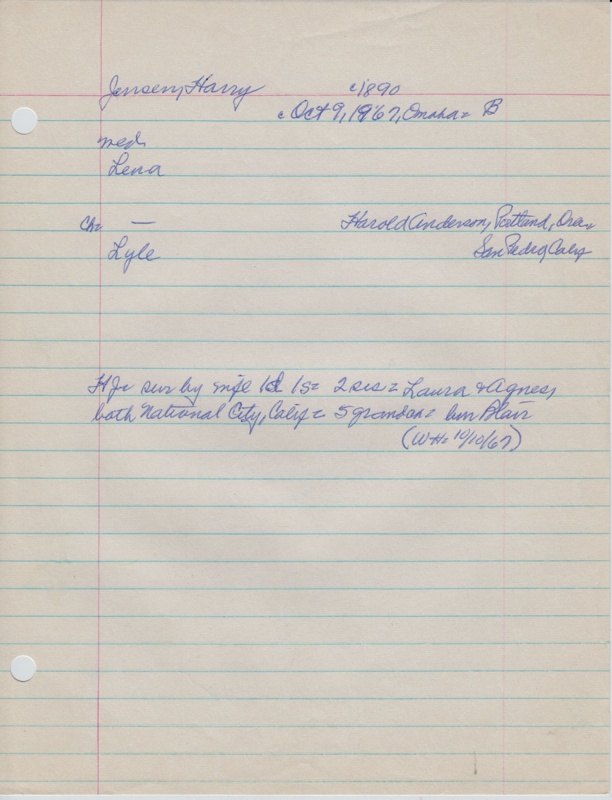 Jensen, Harry c1890
c Oct 9, 1967, Omaha = B
med.
Lena
Ch= — Harold Anderson, Portland, Ore.
Lyle San Pedro, Calif
HJ= sur by wife 1d 1s= 2 sis= Laura & Agnes,
both National City, Calif= 5 grandch= bur Blair
(WH= 10/10/67)